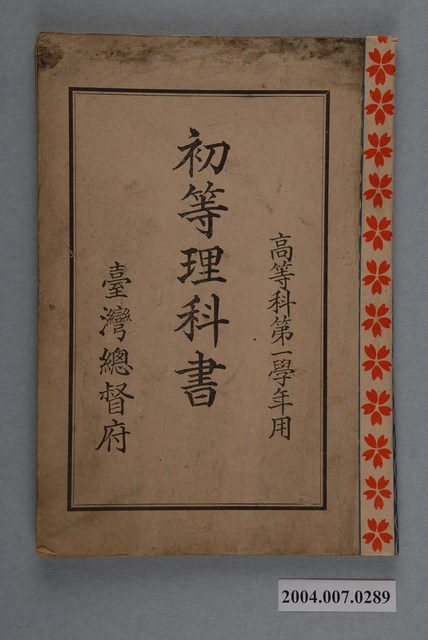 高等科第一學年用
初等理科書
臺灣總督府
2004.007.0289